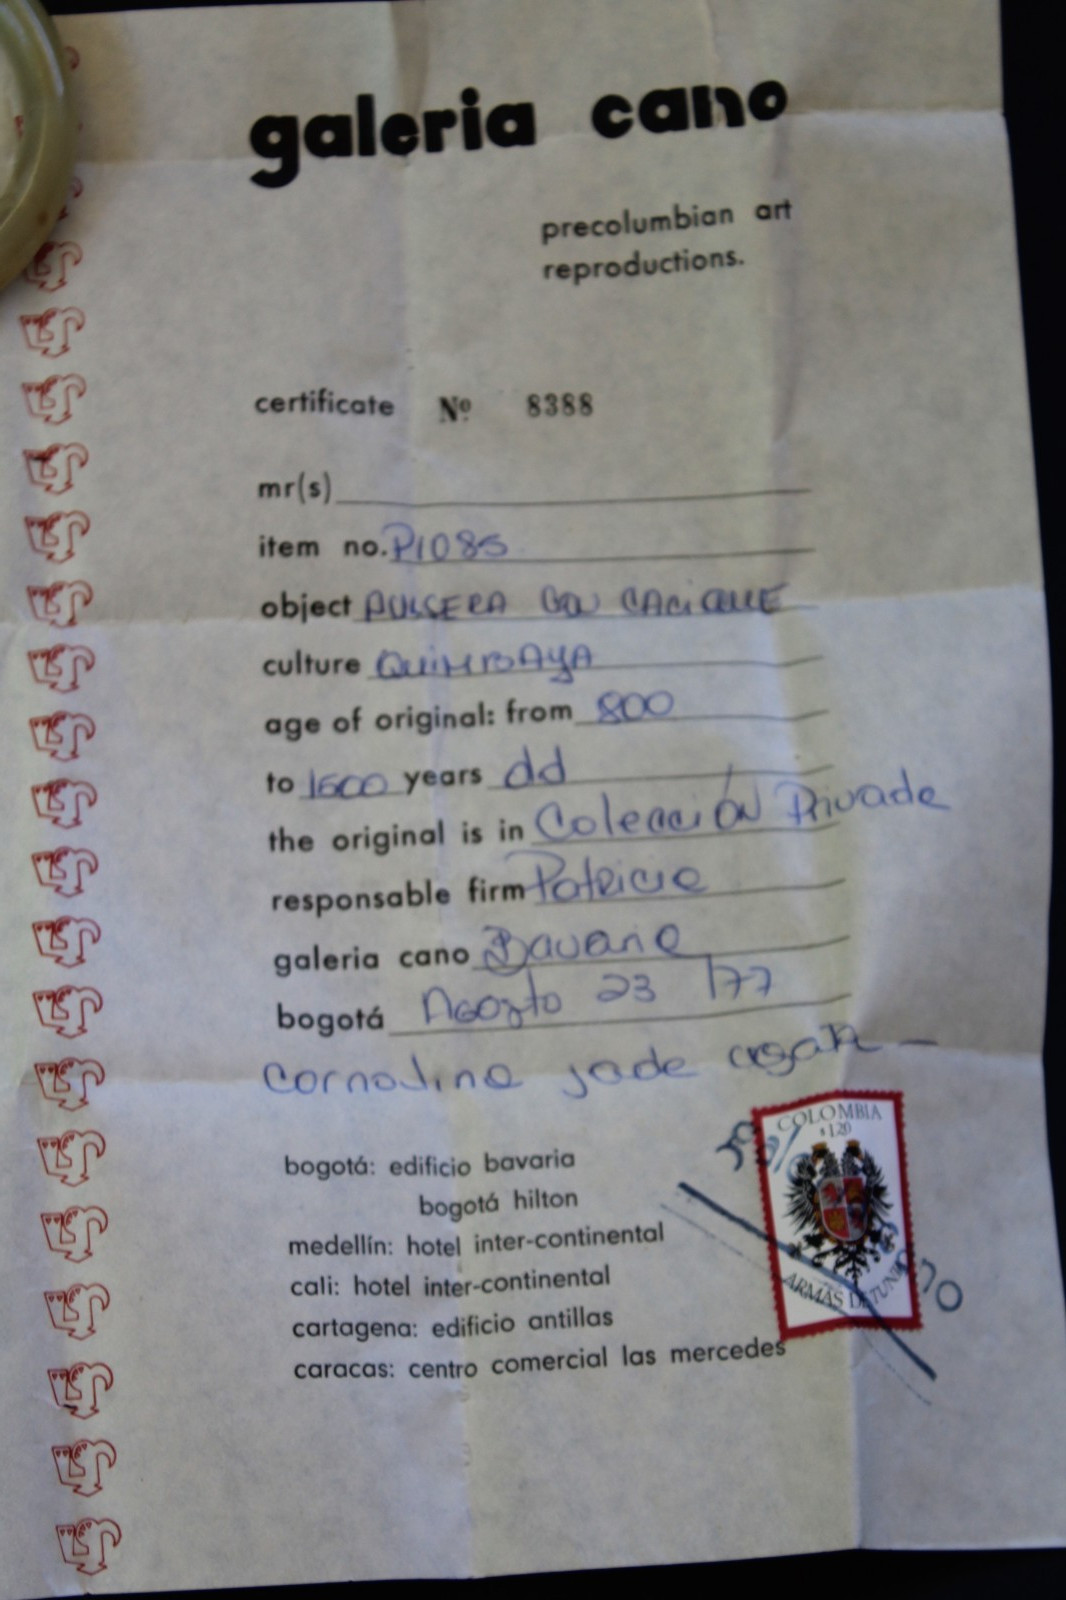 galeria cano
precolumbian art
reproductions.
certificate Nº 8388
mr(s)
item no. P1085
object PULSERA CON CACIQUE
culture QUIMBAYA
age of original: from 800
to 1600 years dd
the original is in Colección Privada
responsable firm Patricia
galeria cano Bavaria
bogotá Agosto 23 /77
Cornalina jade agata —
bogotá: edificio bavaria
bogotá hilton
medellín: hotel inter-continental
cali: hotel inter-continental
cartagena: edificio antillas
caracas: centro comercial las mercedes
COLOMBIA
$1.20
ARMAS DE TUNJA